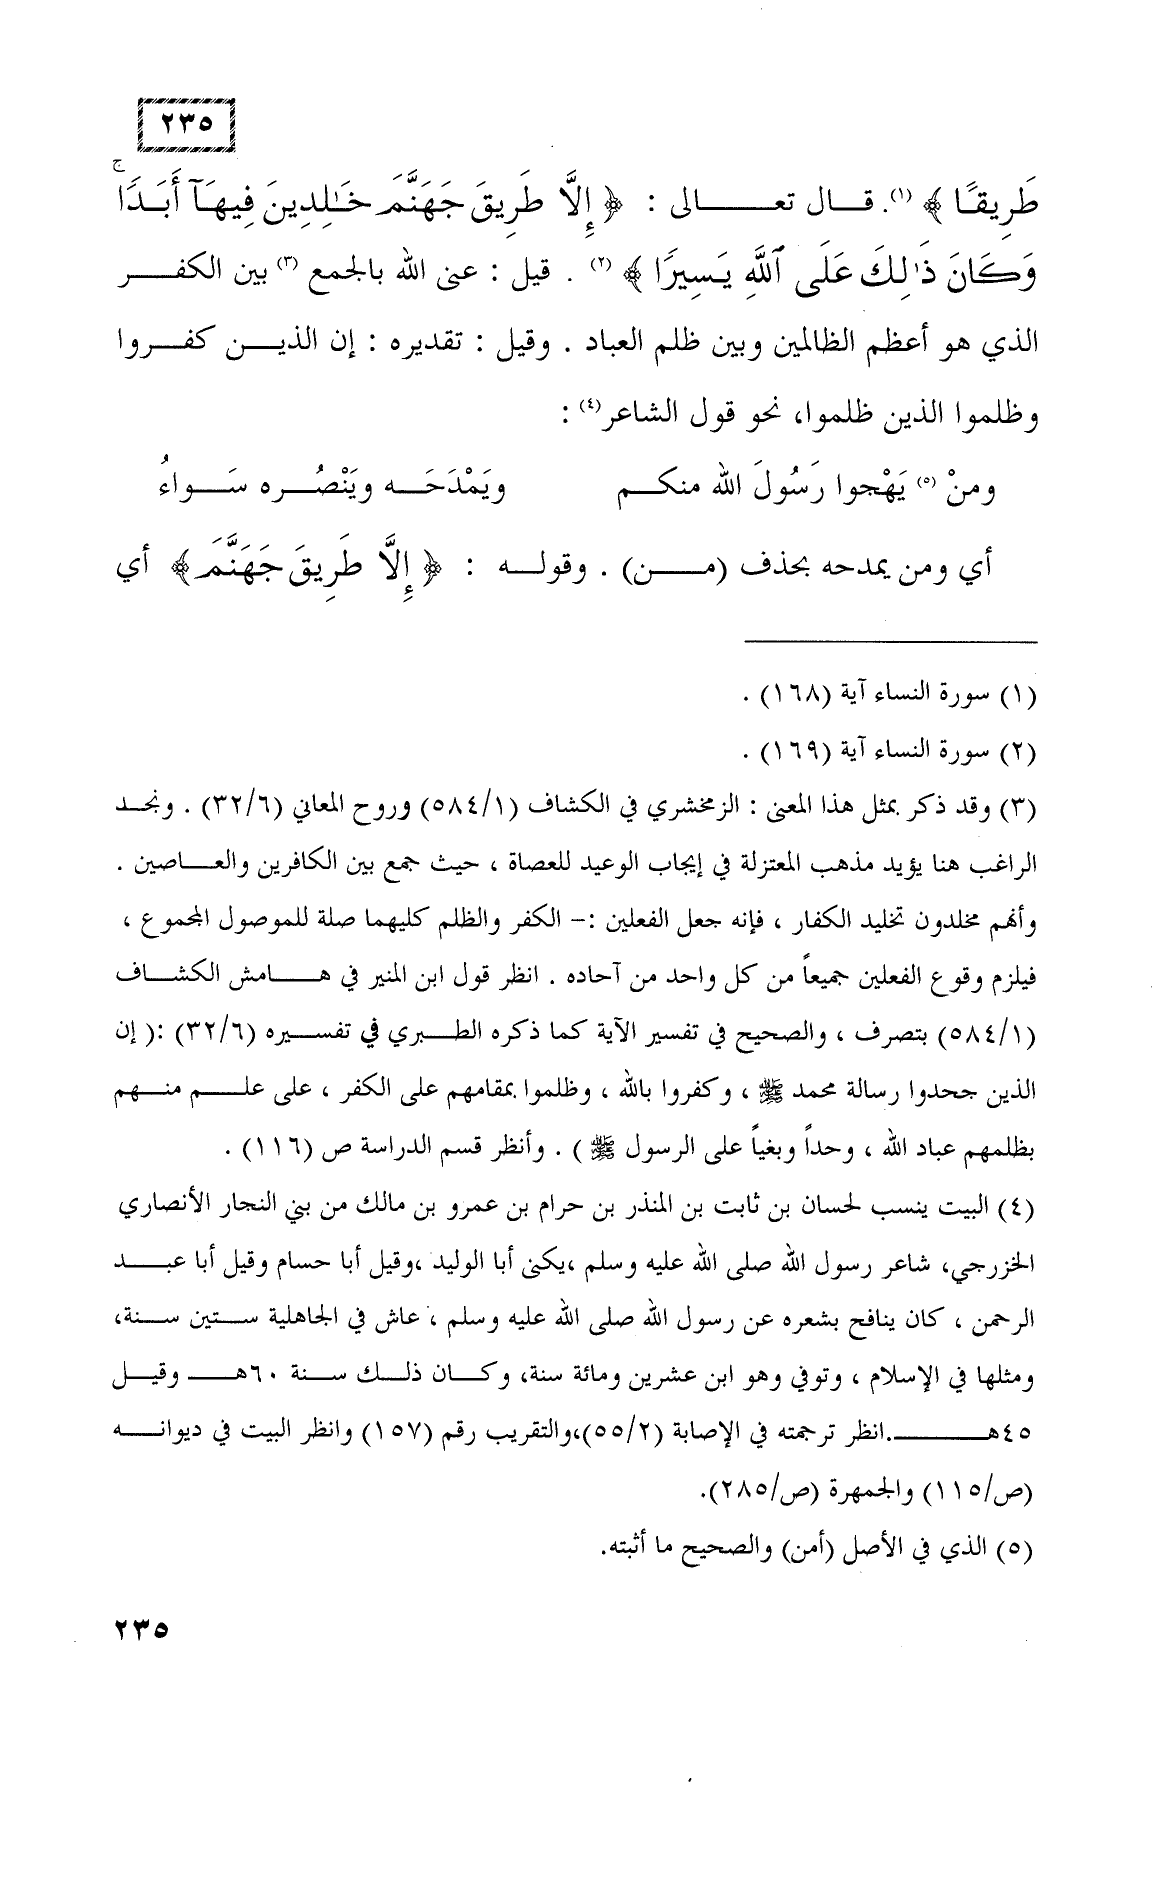 ٢٣٥
طَرِيقًا ﴾ (١). قال تعالى : ﴿ إِلَّا طَرِيقَ جَهَنَّمَ خَـٰلِدِينَ فِيهَآ أَبَدًا ۚ
وَكَانَ ذَٰلِكَ عَلَى ٱللَّهِ يَسِيرًا ﴾ (٢) . قيل : عنى الله بالجمع (٣) بين الكفر
الذي هو أعظم الظالمين وبين ظلم العباد . وقيل : تقديره : إن الذين كفروا
وظلموا الذين ظلموا، نحو قول الشاعر(٤) :
ومنْ (٥) يَهْجوا رَسُولَ الله منكم ويَمْدَحَه ويَنْصُره سَواءُ
أي ومن يمدحه بحذف (من) . وقوله : ﴿ إِلَّا طَرِيقَ جَهَنَّمَ﴾ أي
(١) سورة النساء آية (١٦٨) .
(٢) سورة النساء آية (١٦٩) .
(٣) وقد ذكر بمثل هذا المعنى : الزمخشري في الكشاف (٥٨٤/١) وروح المعاني (٣٢/٦) . ونجد
الراغب هنا يؤيد مذهب المعتزلة في إيجاب الوعيد للعصاة ، حيث جمع بين الكافرين والعاصين .
وأنهم مخلدون تخليد الكفار ، فإنه جعل الفعلين :– الكفر والظلم كليهما صلة للموصول المجموع ،
فيلزم وقوع الفعلين جميعاً من كل واحد من آحاده . انظر قول ابن المنير في هامش الكشاف
(٥٨٤/١) بتصرف ، والصحيح في تفسير الآية كما ذكره الطبري في تفسيره (٣٢/٦) :( إن
الذين جحدوا رسالة محمد ﷺ ، وكفروا بالله ، وظلموا بمقامهم على الكفر ، على علم منهم
بظلمهم عباد الله ، وحداً وبغياً على الرسول ﷺ ) . وأنظر قسم الدراسة ص (١١٦) .
(٤) البيت ينسب لحسان بن ثابت بن المنذر بن حرام بن عمرو بن مالك من بني النجار الأنصاري
الخزرجي، شاعر رسول الله صلى الله عليه وسلم ،يكنى أبا الوليد ،وقيل أبا حسام وقيل أبا عبد
الرحمن ، كان ينافح بشعره عن رسول الله صلى الله عليه وسلم ، عاش في الجاهلية ستين سنة،
ومثلها في الإسلام ، وتوفي وهو ابن عشرين ومائة سنة، وكان ذلك سنة ٦٠هـ وقيل
٤٥هـ.انظر ترجمته في الإصابة (٥٥/٢)،والتقريب رقم (١٥٧) وانظر البيت في ديوانه
(ص/١١٥) والجمهرة (ص/٢٨٥).
(٥) الذي في الأصل (أمن) والصحيح ما أثبته.
٢٣٥